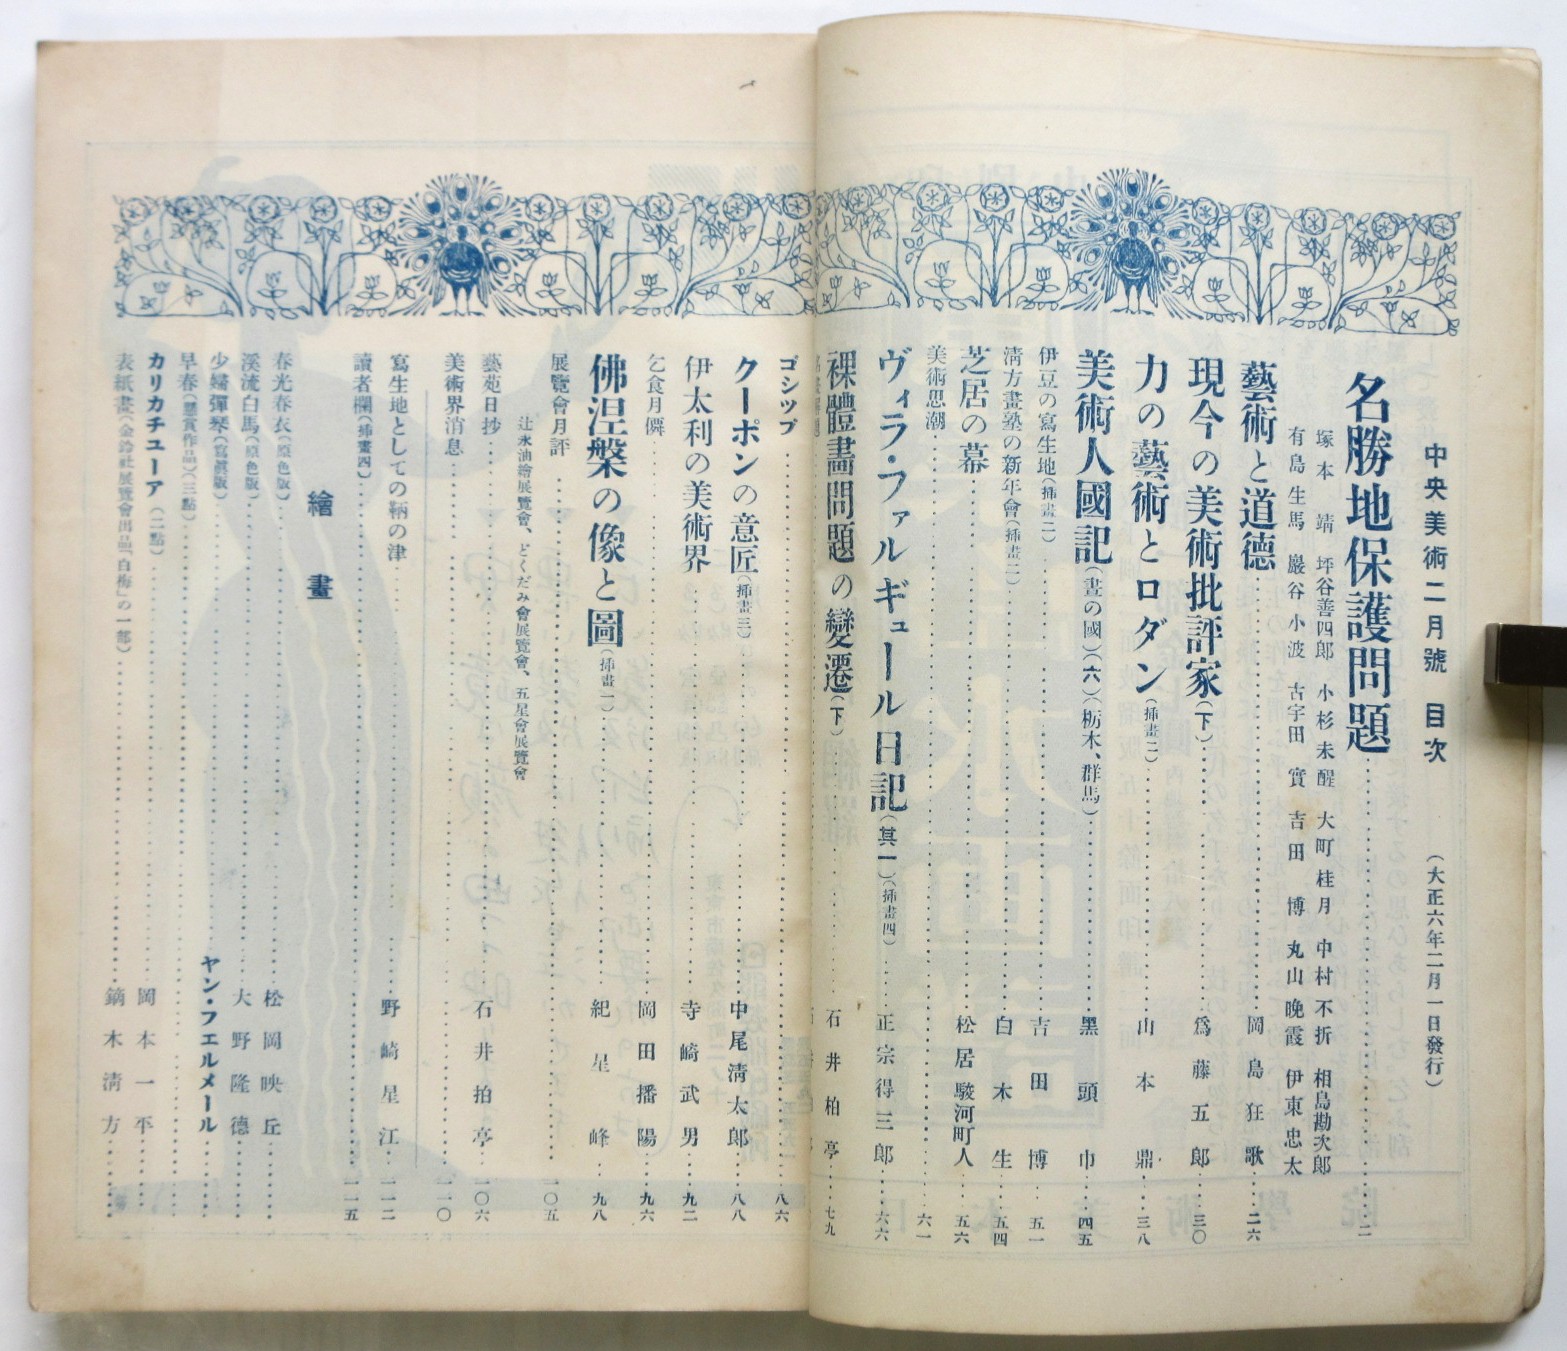 中央美術二月號 目次 (大正六年二月一日發行)
名勝地保護問題……二
塚本靖 坪谷善四郎 小杉未醒 大町桂月 中村不折 相島勘次郎
有島生馬 巖谷小波 古宇田實 吉田博 丸山晩霞 伊東忠太
藝術と道德……岡島狂歌……二六
現今の美術批評家(下)……爲藤五郎……三〇
力の藝術とロダン(挿畫二)……山本鼎……三八
美術人國記(畫の國)(六)(栃木、群馬)……黑頭巾……四五
伊豆の寫生地(挿畫二)……吉田博……五一
淸方畫塾の新年會(挿畫二)……白木生……五四
芝居の幕……松居駿河町人……五六
美術思潮……六一
ヴィラ・ファルギュール日記(其一)(挿畫四)……正宗得三郎……六六
裸體畫問題の變遷(下)……石井柏亭……七九
ゴシップ……八六
クーポンの意匠(挿畫三)……中尾淸太郎……八八
伊太利の美術界……寺崎武男……九二
乞食月僊……岡田播陽……九六
佛涅槃の像と圖(挿畫一)……紀星峰……九八
展覽會月評……一〇五
辻永油繪展覽會、どくだみ會展覽會、五星會展覽會
藝苑日抄……石井拍亭……一〇六
美術界消息……一一〇
寫生地としての鞆の津……野崎星江……一一二
讀者欄(挿畫四)……一一五
繪畫
春光春衣(原色版)……松岡映丘
溪流白馬(原色版)……大野隆德
少婦彈琴(寫眞版)……ヤン・フェルメール
早春(懸賞作品)(三點)
カリカチューア(二點)……岡本一平
表紙畫(金鈴社展覽會出品「白梅」の一部)……鏑木淸方